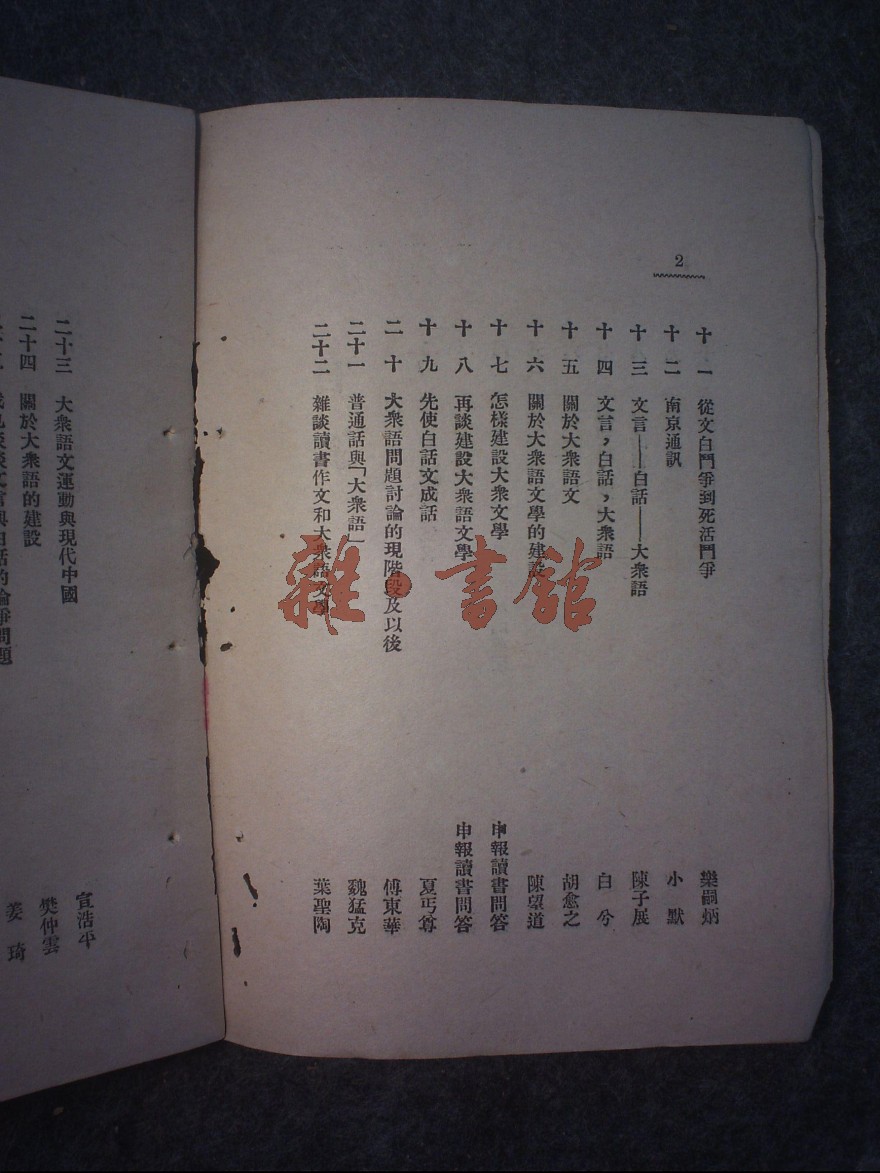 2
十一 從文白鬥爭到死活鬥爭 樂嗣炳
十二 南京通訊 小默
十三 文言——白話——大衆語 陳子展
十四 文言，白話，大衆語 白兮
十五 關於大衆語文 胡愈之
十六 關於大衆語文學的建設 陳望道
十七 怎樣建設大衆文學 申報讀書問答
十八 再談建設大衆語文學 申報讀書問答
十九 先使白話文成話 夏丏尊
二十 大衆語問題討論的現階段及以後 傅東華
二十一 普通話與「大衆語」 魏猛克
二十二 雜談讀書作文和大衆語文學 葉聖陶
二十三 大衆語文運動與現代中國 宣浩平
二十四 關於大衆語的建設 樊仲雲
文言與白話的論爭問題 姜琦
雜·書館